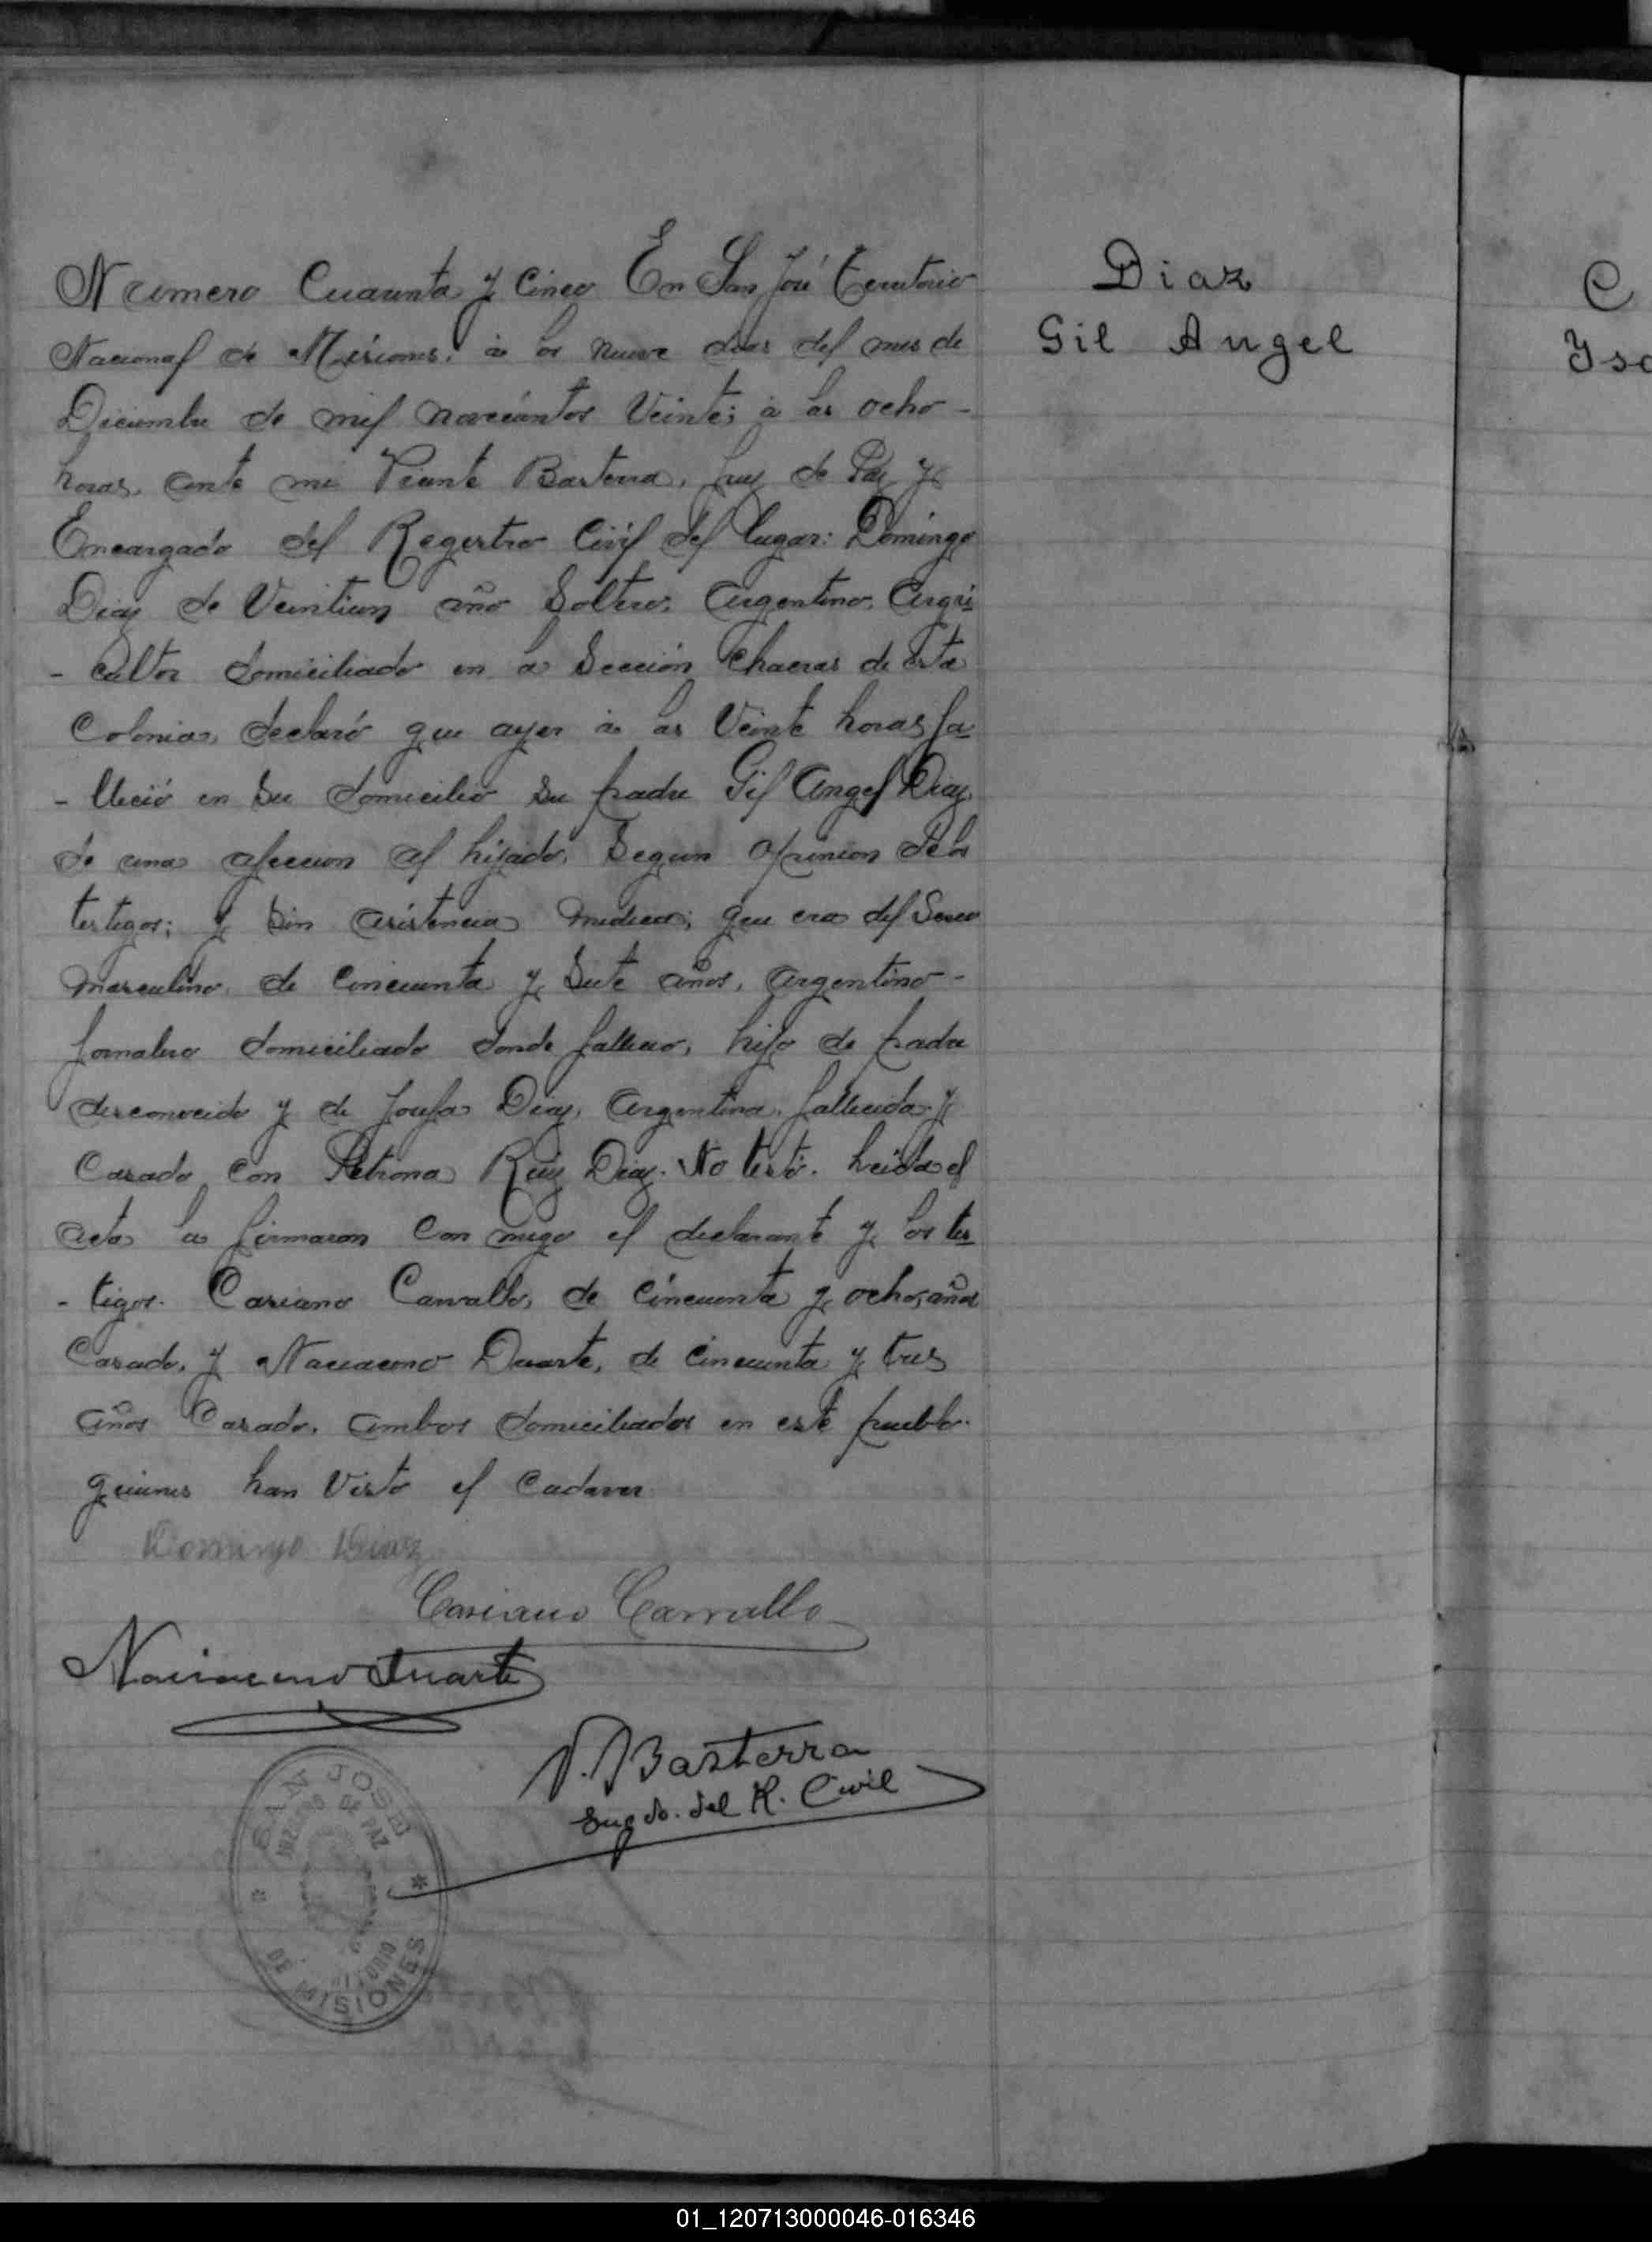 Numero Cuarenta y Cinco En San José Territorio
Nacional de Misiones, à los nueve dias del mes de
Diciembre de mil novecientos Veinte; à las ocho -
horas, ante mi Vicente Basterra, Juez de Paz y
Encargado del Regestro Civil del lugar: Domingo
Diaz de Veintiun año Soltero, Argentino, Agri
- cultor domiciliado en la Sección Chacras de esta
Colonia, declaró que ayer à las Veinte horas fa
- lleció en su domicilio su padre Gil Angel Diaz,
de una afeccion al higado, Segun opinion de los
testigos; y sin asistencia medica; que era del Sexo
masculino, de Cincuenta y Siete años, argentino -
Jornalero domiciliado donde fallecio, hijo de padre
desconocido y de Josefa Diaz, Argentina, fallecida y
Casado con Petrona Ruiz Diaz. No testó. Leida el
acta la firmaron con migo el declarante y los tes
- tigos. Casiano Carvallo, de cincuenta y ocho, años
Casado, y Naciaceno Duarte, de cincuenta y tres
años Casado, ambos domiciliados en este pueblo.
quienes han Visto el Cadaver
Domingo Diaz
Casiano Carvallo
Naciaceno Duarte
V. Basterra
Engdo. del R. Civil
SAN JOSE
JUZGADO DE PAZ
TERRITORIO
DE MISIONES
Diaz
Gil Angel
C
Ysa
01_120713000046-016346